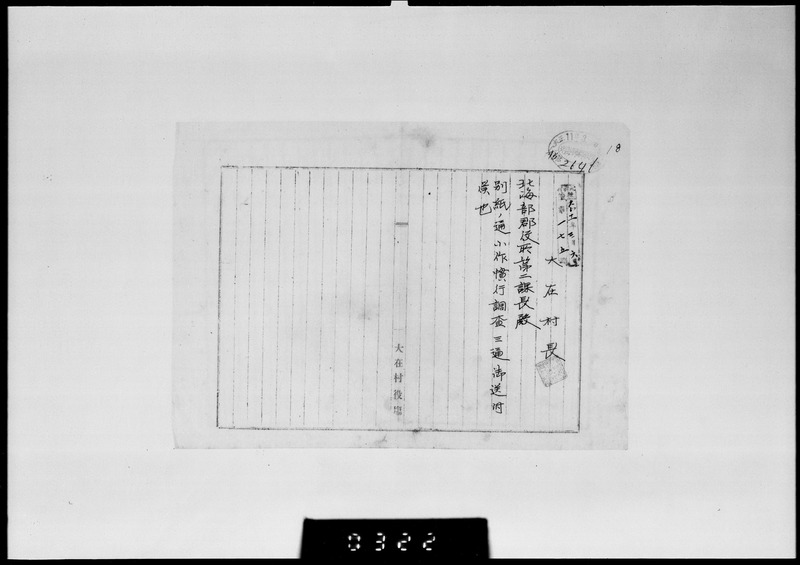 18
2141
大在村長
北海部郡役所第二課長殿
別紙ノ通小作慣行調査三通御送附
候也
大在村役場
0322